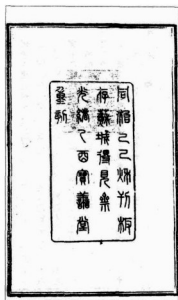 同治己巳刊板
存蘇城得見齋
光緒乙酉寶善堂
重刊